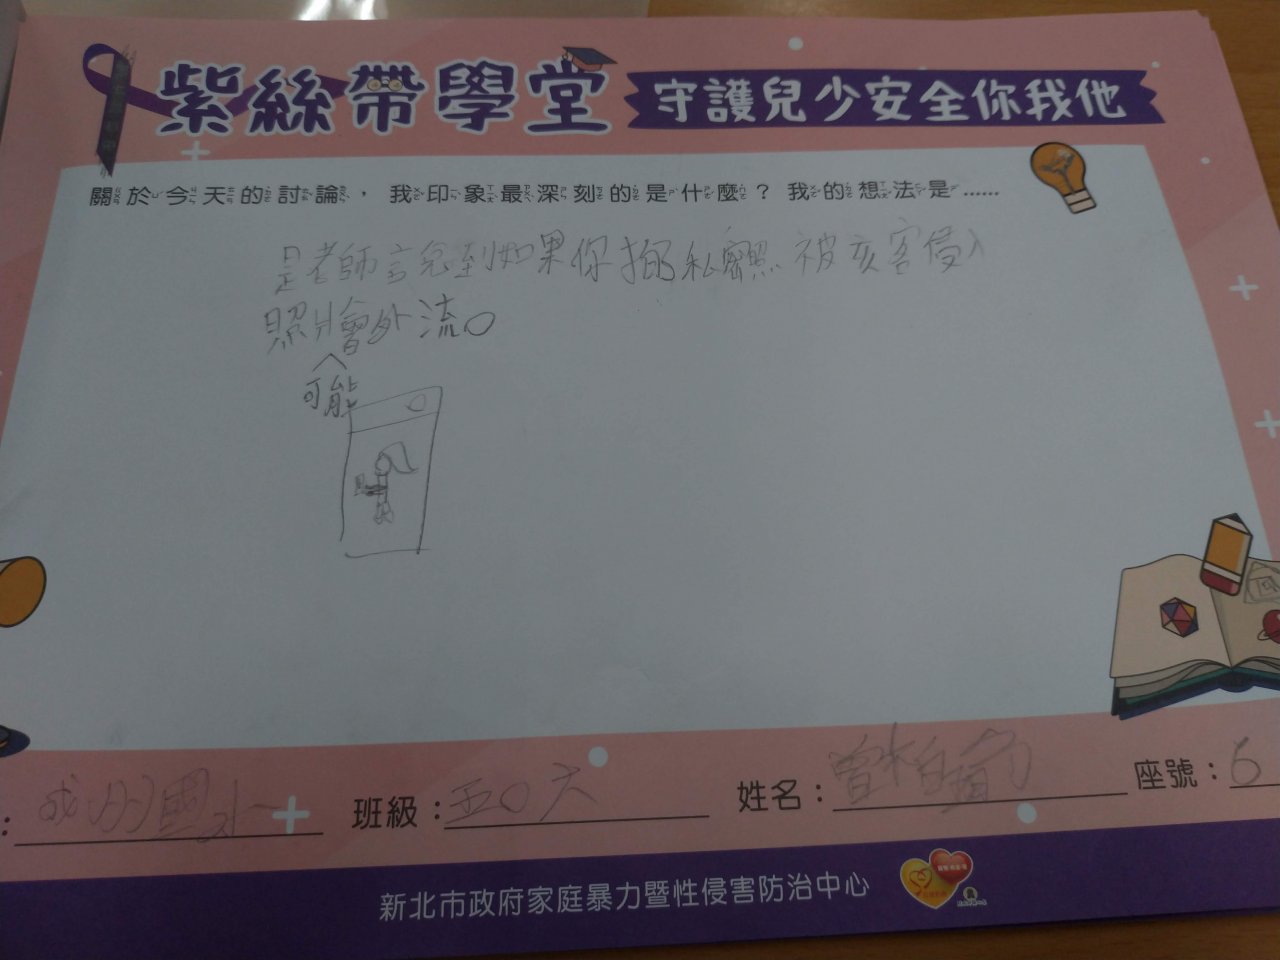 紫絲帶學堂 守護兒少安全你我他
關於今天的討論，我印象最深刻的是什麼？我的想法是......
是老師說到如果你拍私密照被亥客侵入
照片會外流。
可能
班級：五〇六 姓名： 座號：6
新北市政府家庭暴力暨性侵害防治中心